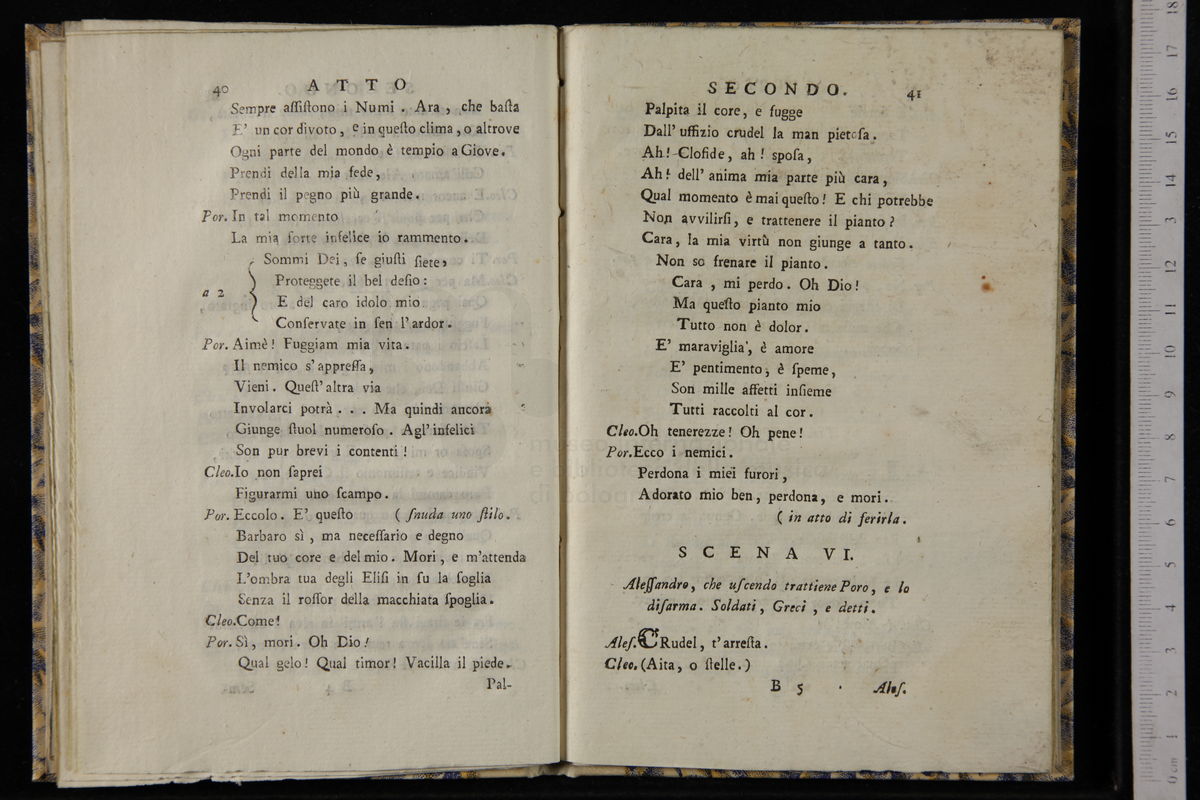 40 ATTO
Sempre aſſiſtono i Numi . Ara , che baſta
E' un cor divoto , e in queſto clima , o altrove
Ogni parte del mondo è tempio a Giove.
Prendi della mia fede,
Prendi il pegno più grande.
Por. In tal momento
La mia ſorte infelice io rammento.
Sommi Dei, ſe giuſti ſiete,
Proteggete il bel deſio :
a 2 E del caro idolo mio
Conſervate in ſen l'ardor.
Por. Aimè! Fuggiam mia vita.
Il nemico s'appreſſa,
Vieni. Queſt'altra via
Involarci potrà . . . Ma quindi ancora
Giunge ſtuol numeroſo . Agl'infelici
Son pur brevi i contenti !
Cleo.Io non ſaprei
Figurarmi uno ſcampo.
Por. Eccolo. E' queſto ( ſnuda uno ſtilo.
Barbaro sì , ma neceſſario e degno
Del tuo core e del mio. Mori, e m'attenda
L'ombra tua degli Eliſi in ſu la ſoglia
Senza il roſſor della macchiata ſpoglia.
Cleo.Come!
Por. Sì, mori. Oh Dio!
Qual gelo! Qual timor! Vacilla il piede.
Pal-
SECONDO. 41
Palpita il core, e fugge
Dall'uffizio crudel la man pietoſa.
Ah! Cloſide, ah ! ſpoſa,
Ah! dell'anima mia parte più cara,
Qual momento è mai queſto! E chi potrebbe
Non avvilirſi, e trattenere il pianto ?
Cara, la mia virtù non giunge a tanto.
Non so frenare il pianto.
Cara , mi perdo. Oh Dio!
Ma queſto pianto mio
Tutto non è dolor.
E' maraviglia, è amore
E' pentimento, è ſpeme,
Son mille affetti inſieme
Tutti raccolti al cor.
Cleo.Oh tenerezze! Oh pene!
Por.Ecco i nemici.
Perdona i miei furori,
Adorato mio ben, perdona, e mori.
( in atto di ferirla.
SCENA VI.
Aleſſandro, che uſcendo trattiene Poro, e lo
diſarma. Soldati, Greci , e detti.
Aleſ. CRudel, t'arreſta.
Cleo. (Aita, o ſtelle.)
B 5 Aleſ.